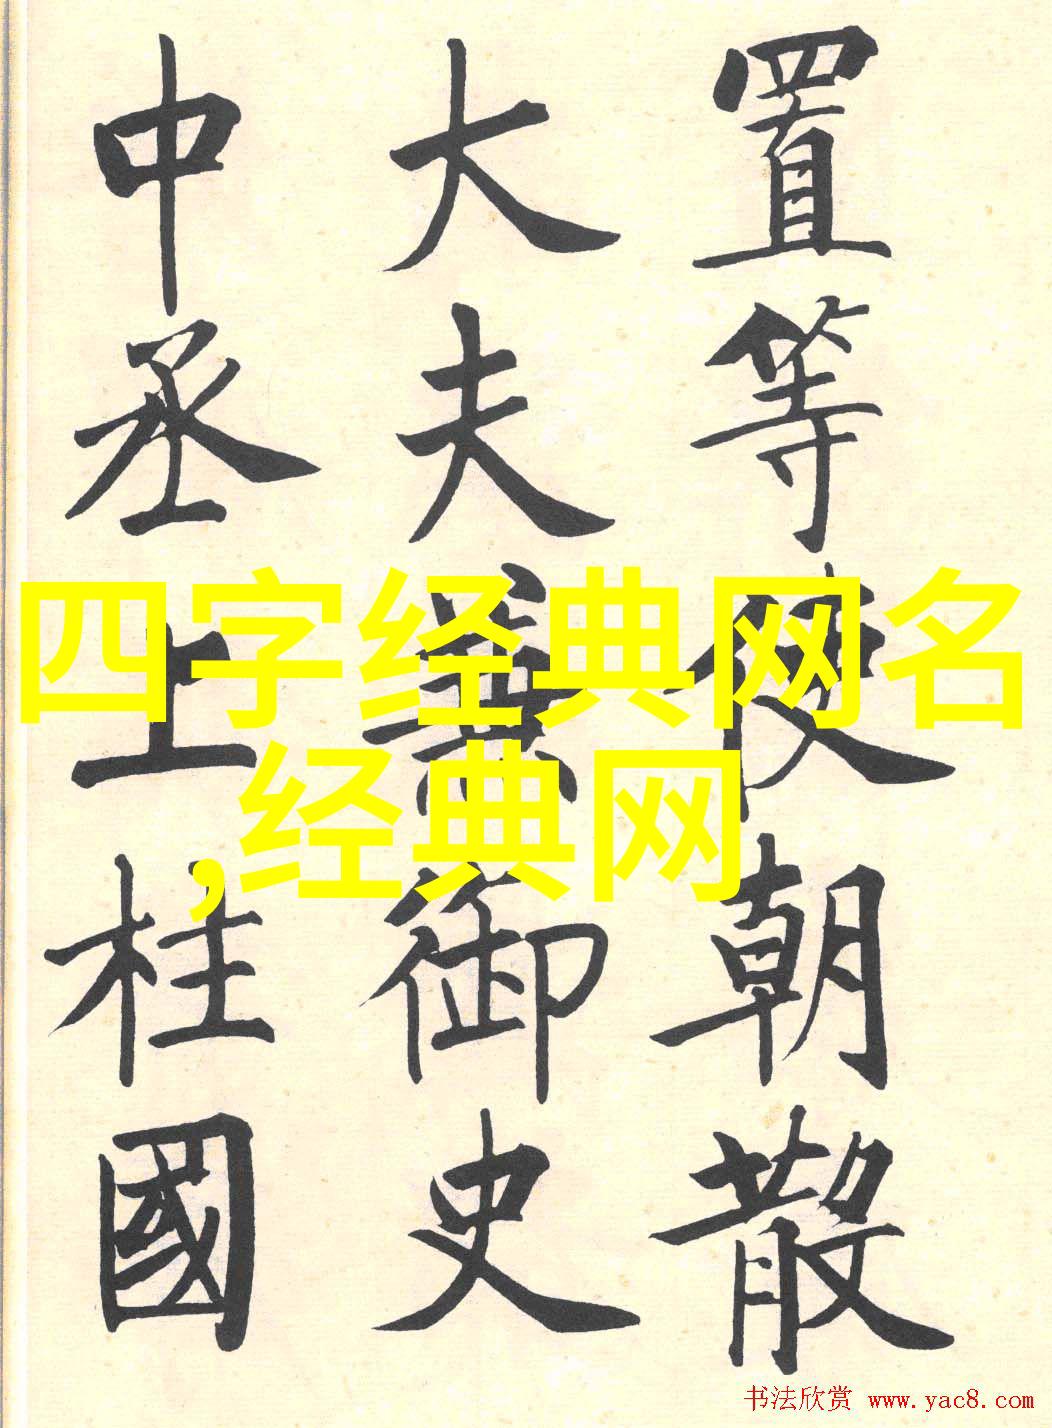 置等使朝散
大夫兼御史
中丞上柱國
四字经典网名
,经典网
书法欣赏 www.yac8.com